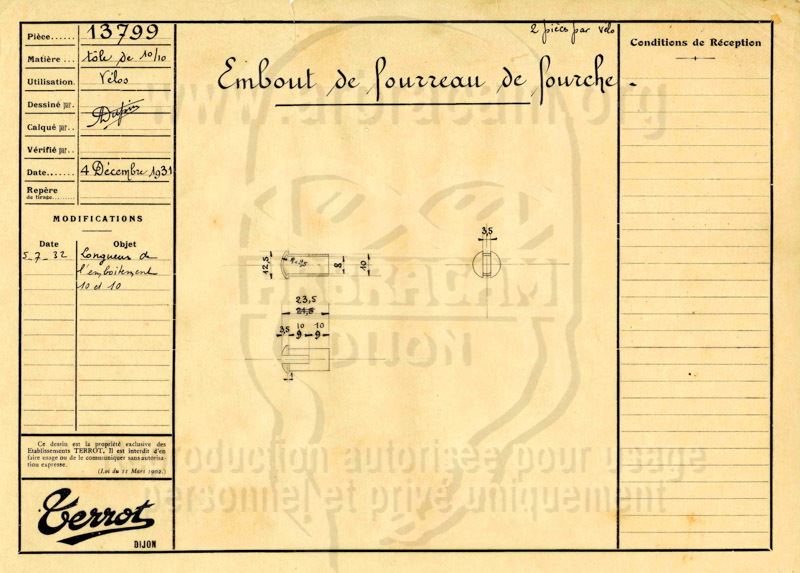 Pièce... 13799
Matière... tôle de 10/10
Utilisation. Vélos
Dessiné par.
Calqué par..
Vérifié par..
Date....... 4 Décembre 1931
Repère
de tirage........
MODIFICATIONS
Date Objet
5-7-32 Longueur de
l'emboitement
10 et 10
Ce dessin est la propriété exclusive des
Etablissements TERROT. Il est interdit d'en
faire usage ou de le communiquer sans autorisa-
tion expresse.
(Loi du 11 Mars 1902.)
Terrot
DIJON
2 pièces par vélo
Embout de fourreau de fourche.
12,5
8
10
3,5
23,5
24,5
3,5 10 10
9 9
Conditions de Réception
www.afbracam.org
FABRACAM
DIJON
Reproduction autorisée pour usage
personnel et privé uniquement